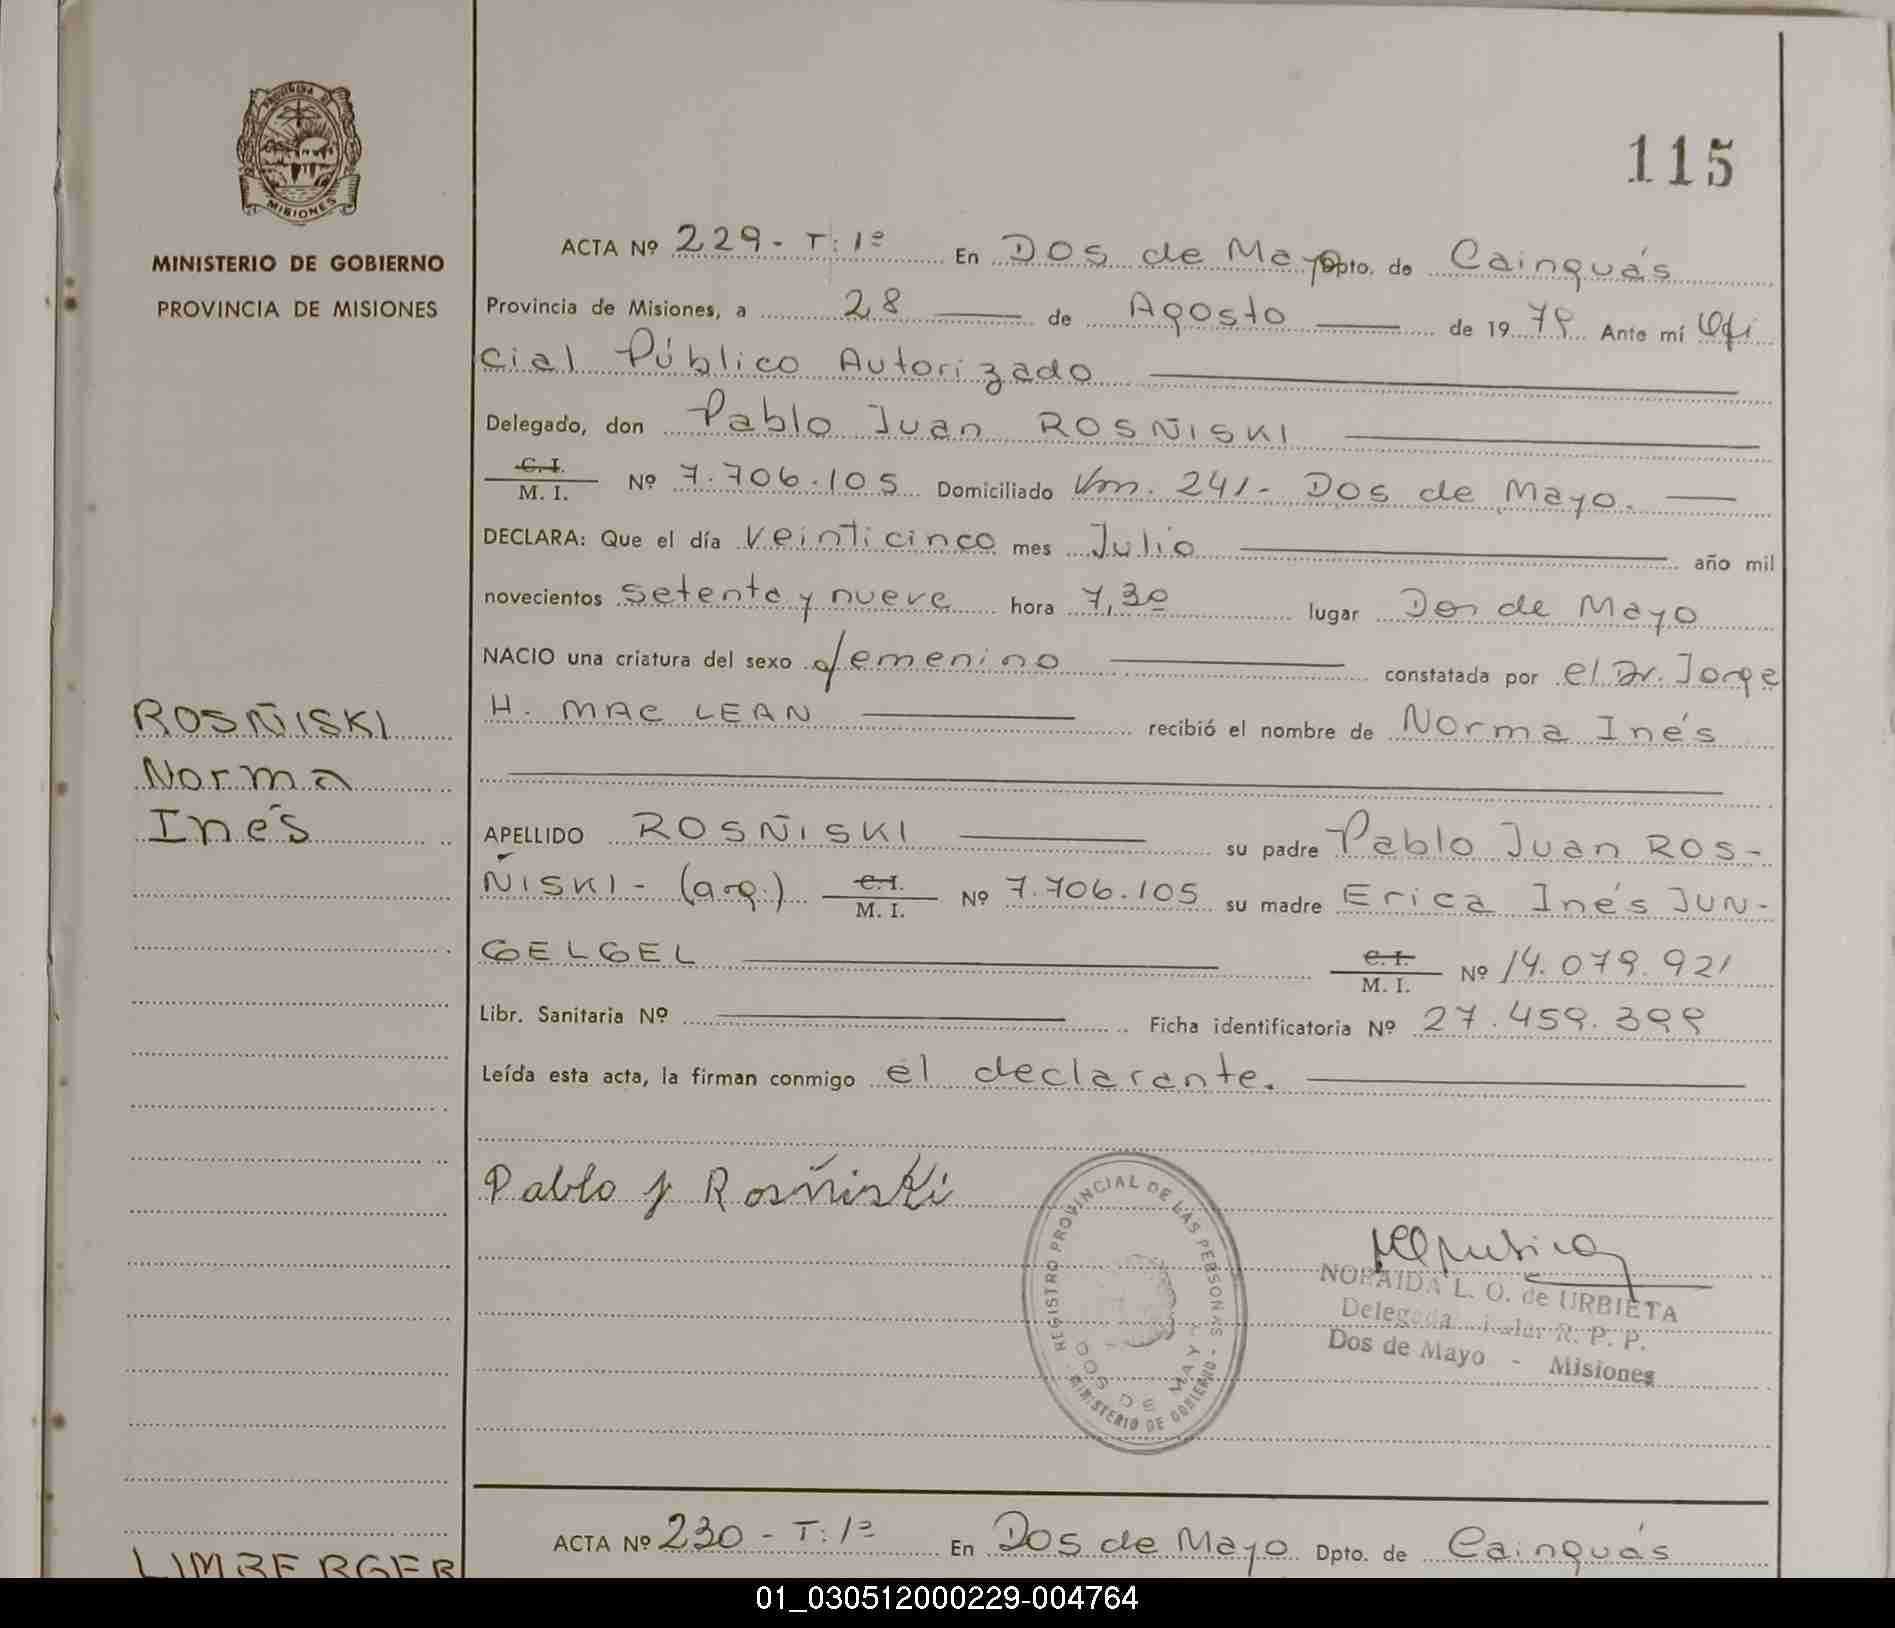 PROVINCIA DE
MISIONES
MINISTERIO DE GOBIERNO
PROVINCIA DE MISIONES
115
ACTA Nº 229 - T: 1º En Dos de Mayo Dpto. de Cainguás
Provincia de Misiones, a 28 de Agosto de 19 79 Ante mí Ofi
cial Público Autorizado
Delegado, don Pablo Juan ROSÑISKI
C. I.
M. I. Nº 7.706.105 Domiciliado Km. 241 - Dos de Mayo.
DECLARA: Que el día veinticinco mes Julio año mil
novecientos setenta y nueve hora 7,30 lugar Dos de Mayo
NACIO una criatura del sexo femenino constatada por el Dr. Jorge
H. MAC LEAN recibió el nombre de Norma Inés
ROSÑISKI
Norma
Inés
APELLIDO ROSÑISKI su padre Pablo Juan ROS-
ÑISKI - (arg.) C. I.
M. I. Nº 7.706.105 su madre Erica Inés JUN-
GELGEL C. I.
M. I. Nº 14.079.921
Libr. Sanitaria Nº Ficha identificatoria Nº 27.459.399
Leída esta acta, la firman conmigo el declarante.
Pablo J Rosñiski
REGISTRO PROVINCIAL DE LAS PERSONAS - MINISTERIO DE GOBIERNO -
DOS DE MAYO
NORAIDA L. O. de URBIETA
Delegada R. P. P.
Dos de Mayo - Misiones
ACTA Nº 230 - T: 1º En Dos de Mayo Dpto. de Cainguás
LIMBERGER
01_030512000229-004764